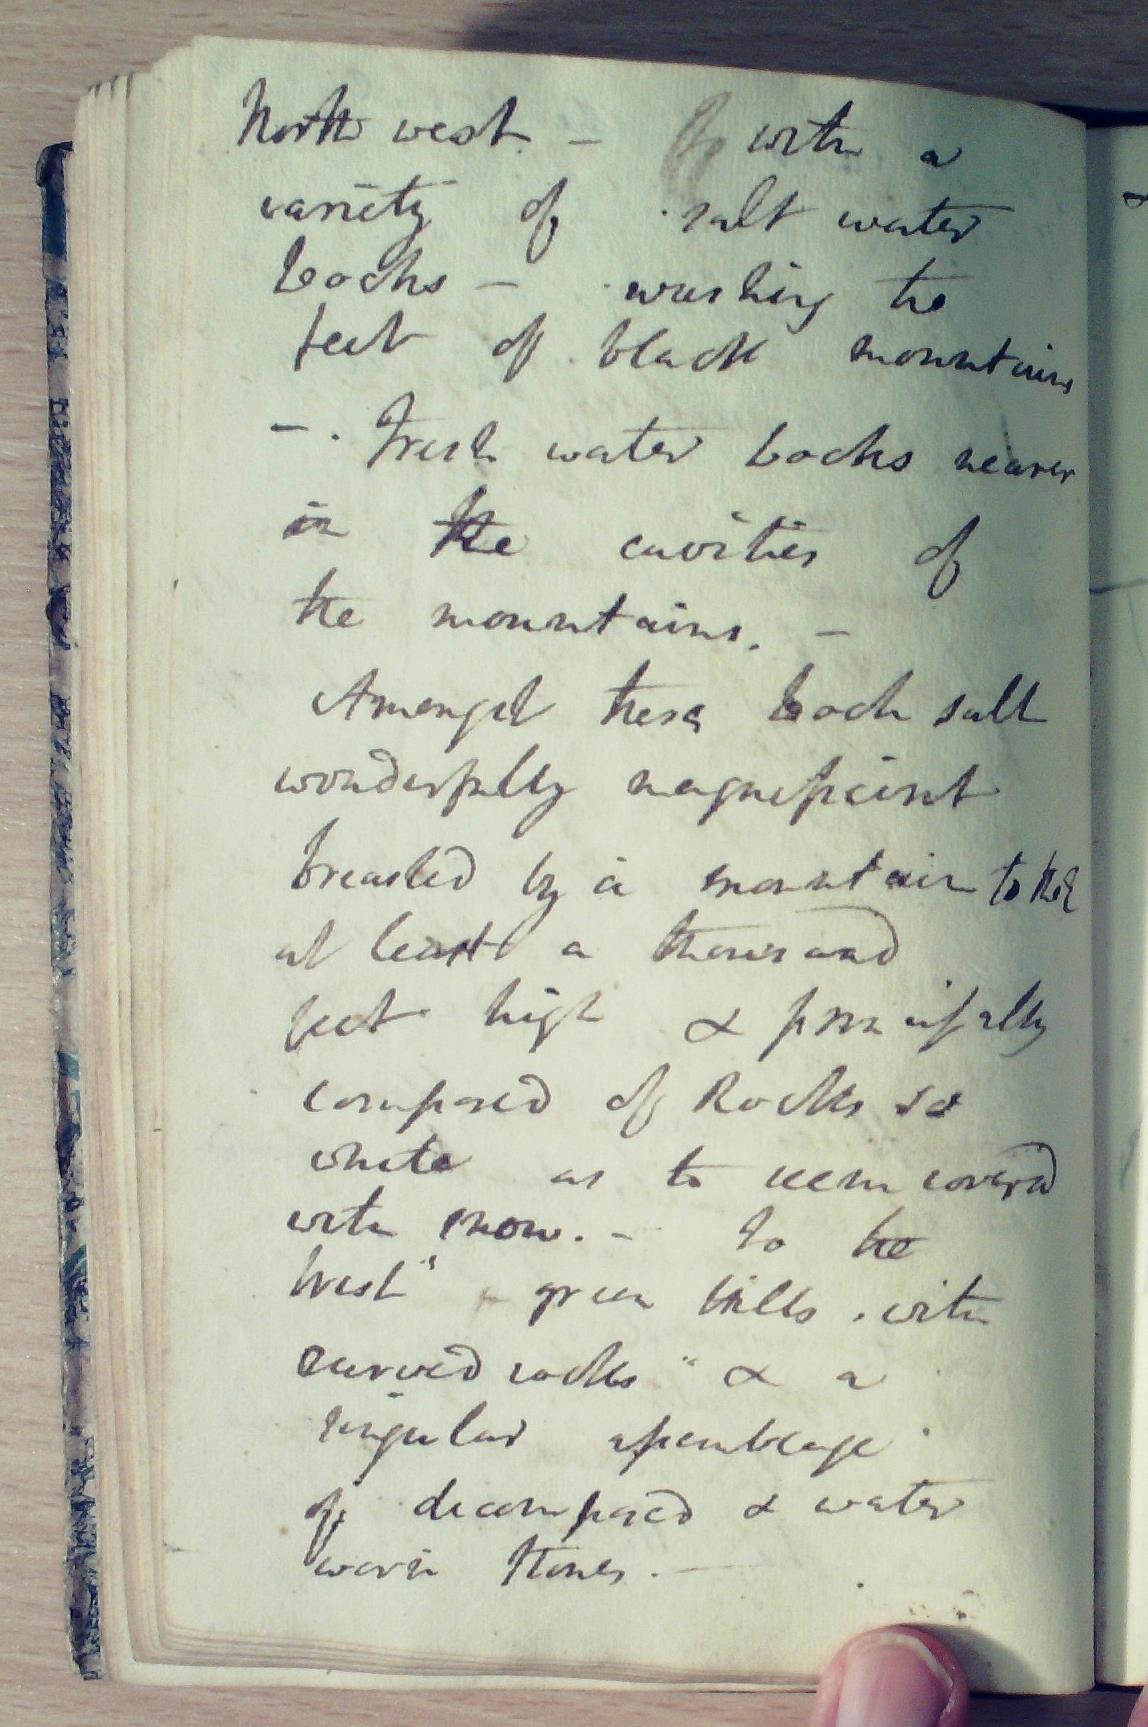 North west – with a
variety of salt water
Lochs – washing the
feet of black mountains
–. Fresh water Lochs nearer
in the cavities of
the mountains. –
Amongst these Loch salt
wonderfully magnificent
breasted by a mountain to the E
at least a thousand
feet high & principally
composed of Rocks so
white as to seem covered
with snow. – To the
West" green hills with
curved rocks " & a
singular assemblage
of decomposed & water
worn stones. –